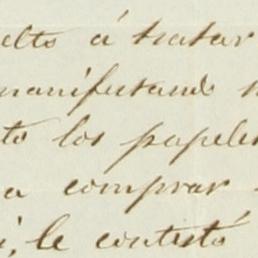 elto á tratar
manifestando
to los papeles
a comprar
i, le contestó